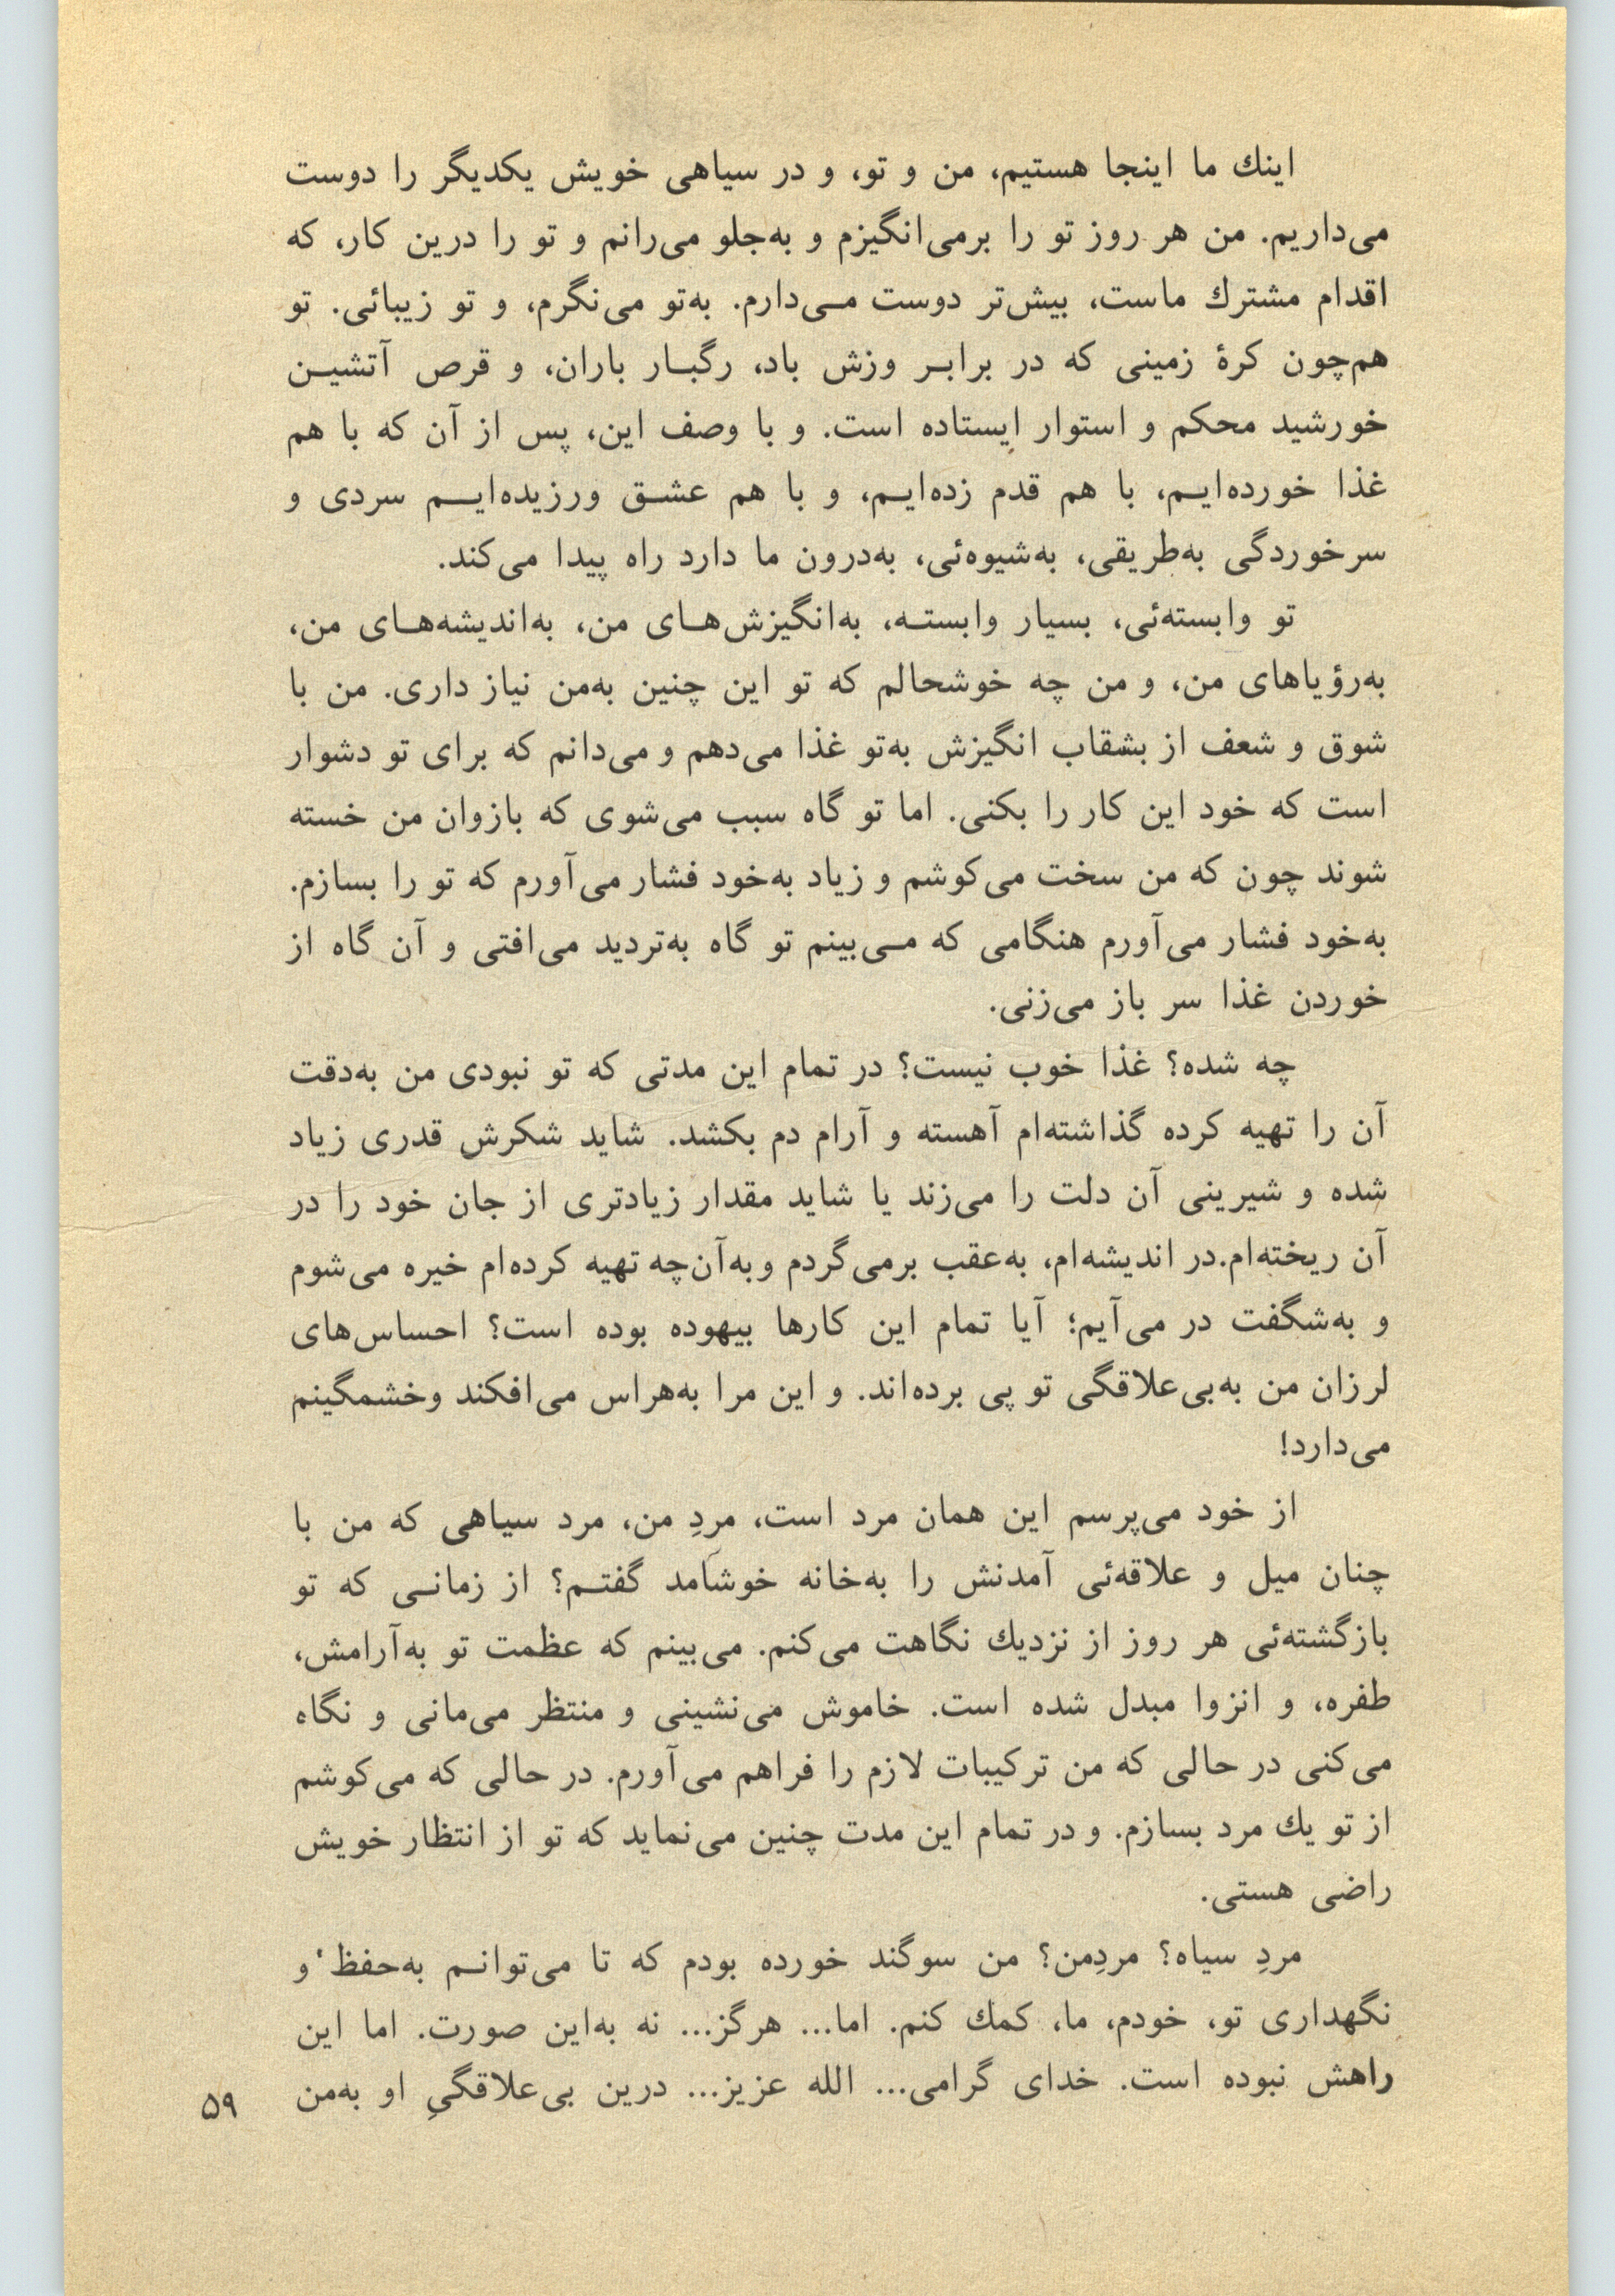 اینك ما اینجا هستیم، من و تو، و در سیاهی خویش یکدیگر را دوست
می‌داریم. من هر روز تو را برمی‌انگیزم و به‌جلو می‌رانم و تو را درین کار، که
اقدام مشترك ماست، بیش‌تر دوست مـی‌دارم. به‌تو می‌نگرم، و تو زیبائی. تو
هم‌چون کرهٔ زمینی که در برابـر وزش باد، رگبـار باران، و قرص آتشیـن
خورشید محکم و استوار ایستاده است. و با وصف این، پس از آن که با هم
غذا خورده‌ایـم، با هم قدم زده‌ایـم، و با هم عشـق ورزیده‌ایـــم سردی و
سرخوردگی به‌طریقی، به‌شیوه‌ئی، به‌درون ما دارد راه پیدا می‌کند.
تو وابسته‌ئی، بسیار وابستـه، به‌انگیزش‌هـای من، به‌اندیشه‌هـای من،
به‌رؤیاهای من، و من چه خوشحالم که تو این چنین به‌من نیاز داری. من با
شوق و شعف از بشقاب انگیزش به‌تو غذا می‌دهم و می‌دانم که برای تو دشوار
است که خود این کار را بکنی. اما تو گاه سبب می‌شوی که بازوان من خسته
شوند چون که من سخت می‌کوشم و زیاد به‌خود فشار می‌آورم که تو را بسازم.
به‌خود فشار می‌آورم هنگامی که مـی‌بینم تو گاه به‌تردید می‌افتی و آن گاه از
خوردن غذا سر باز می‌زنی.
چه شده؟ غذا خوب نیست؟ در تمام این مدتی که تو نبودی من به‌دقت
آن را تهیه کرده گذاشته‌ام آهسته و آرام دم بکشد. شاید شکرش قدری زیاد
شده و شیرینی آن دلت را می‌زند یا شاید مقدار زیادتری از جان خود را در
آن ریخته‌ام. در اندیشه‌ام، به‌عقب برمی‌گردم و به‌آن‌چه تهیه کرده‌ام خیره می‌شوم
و به‌شگفت در می‌آیم؛ آیا تمام این کارها بیهوده بوده است؟ احساس‌های
لرزان من به‌بی‌علاقگی تو پی برده‌اند. و این مرا به‌هراس می‌افکند وخشمگینم
می‌دارد!
از خود می‌پرسم این همان مرد است، مردِ من، مرد سیاهی که من با
چنان میل و علاقه‌ئی آمدنش را به‌خانه خوشآمد گفتـم؟ از زمانـی که تو
بازگشته‌ئی هر روز از نزدیك نگاهت می‌کنم. می‌بینم که عظمت تو به‌آرامش،
طفره، و انزوا مبدل شده است. خاموش می‌نشینی و منتظر می‌مانی و نگاه
می‌کنی در حالی که من ترکیبات لازم را فراهم می‌آورم. در حالی که می‌کوشم
از تو یك مرد بسازم. و در تمام این مدت چنین می‌نماید که تو از انتظار خویش
راضی هستی.
مردِ سیاه؟ مردِمن؟ من سوگند خورده بودم که تا می‌توانـم به‌حفظ و
نگهداری تو، خودم، ما، کمك کنم. اما... هرگز... نه به‌این صورت. اما این
راهش نبوده است. خدای گرامی... الله عزیز... درین بی‌علاقگیِ او به‌من
۵۹